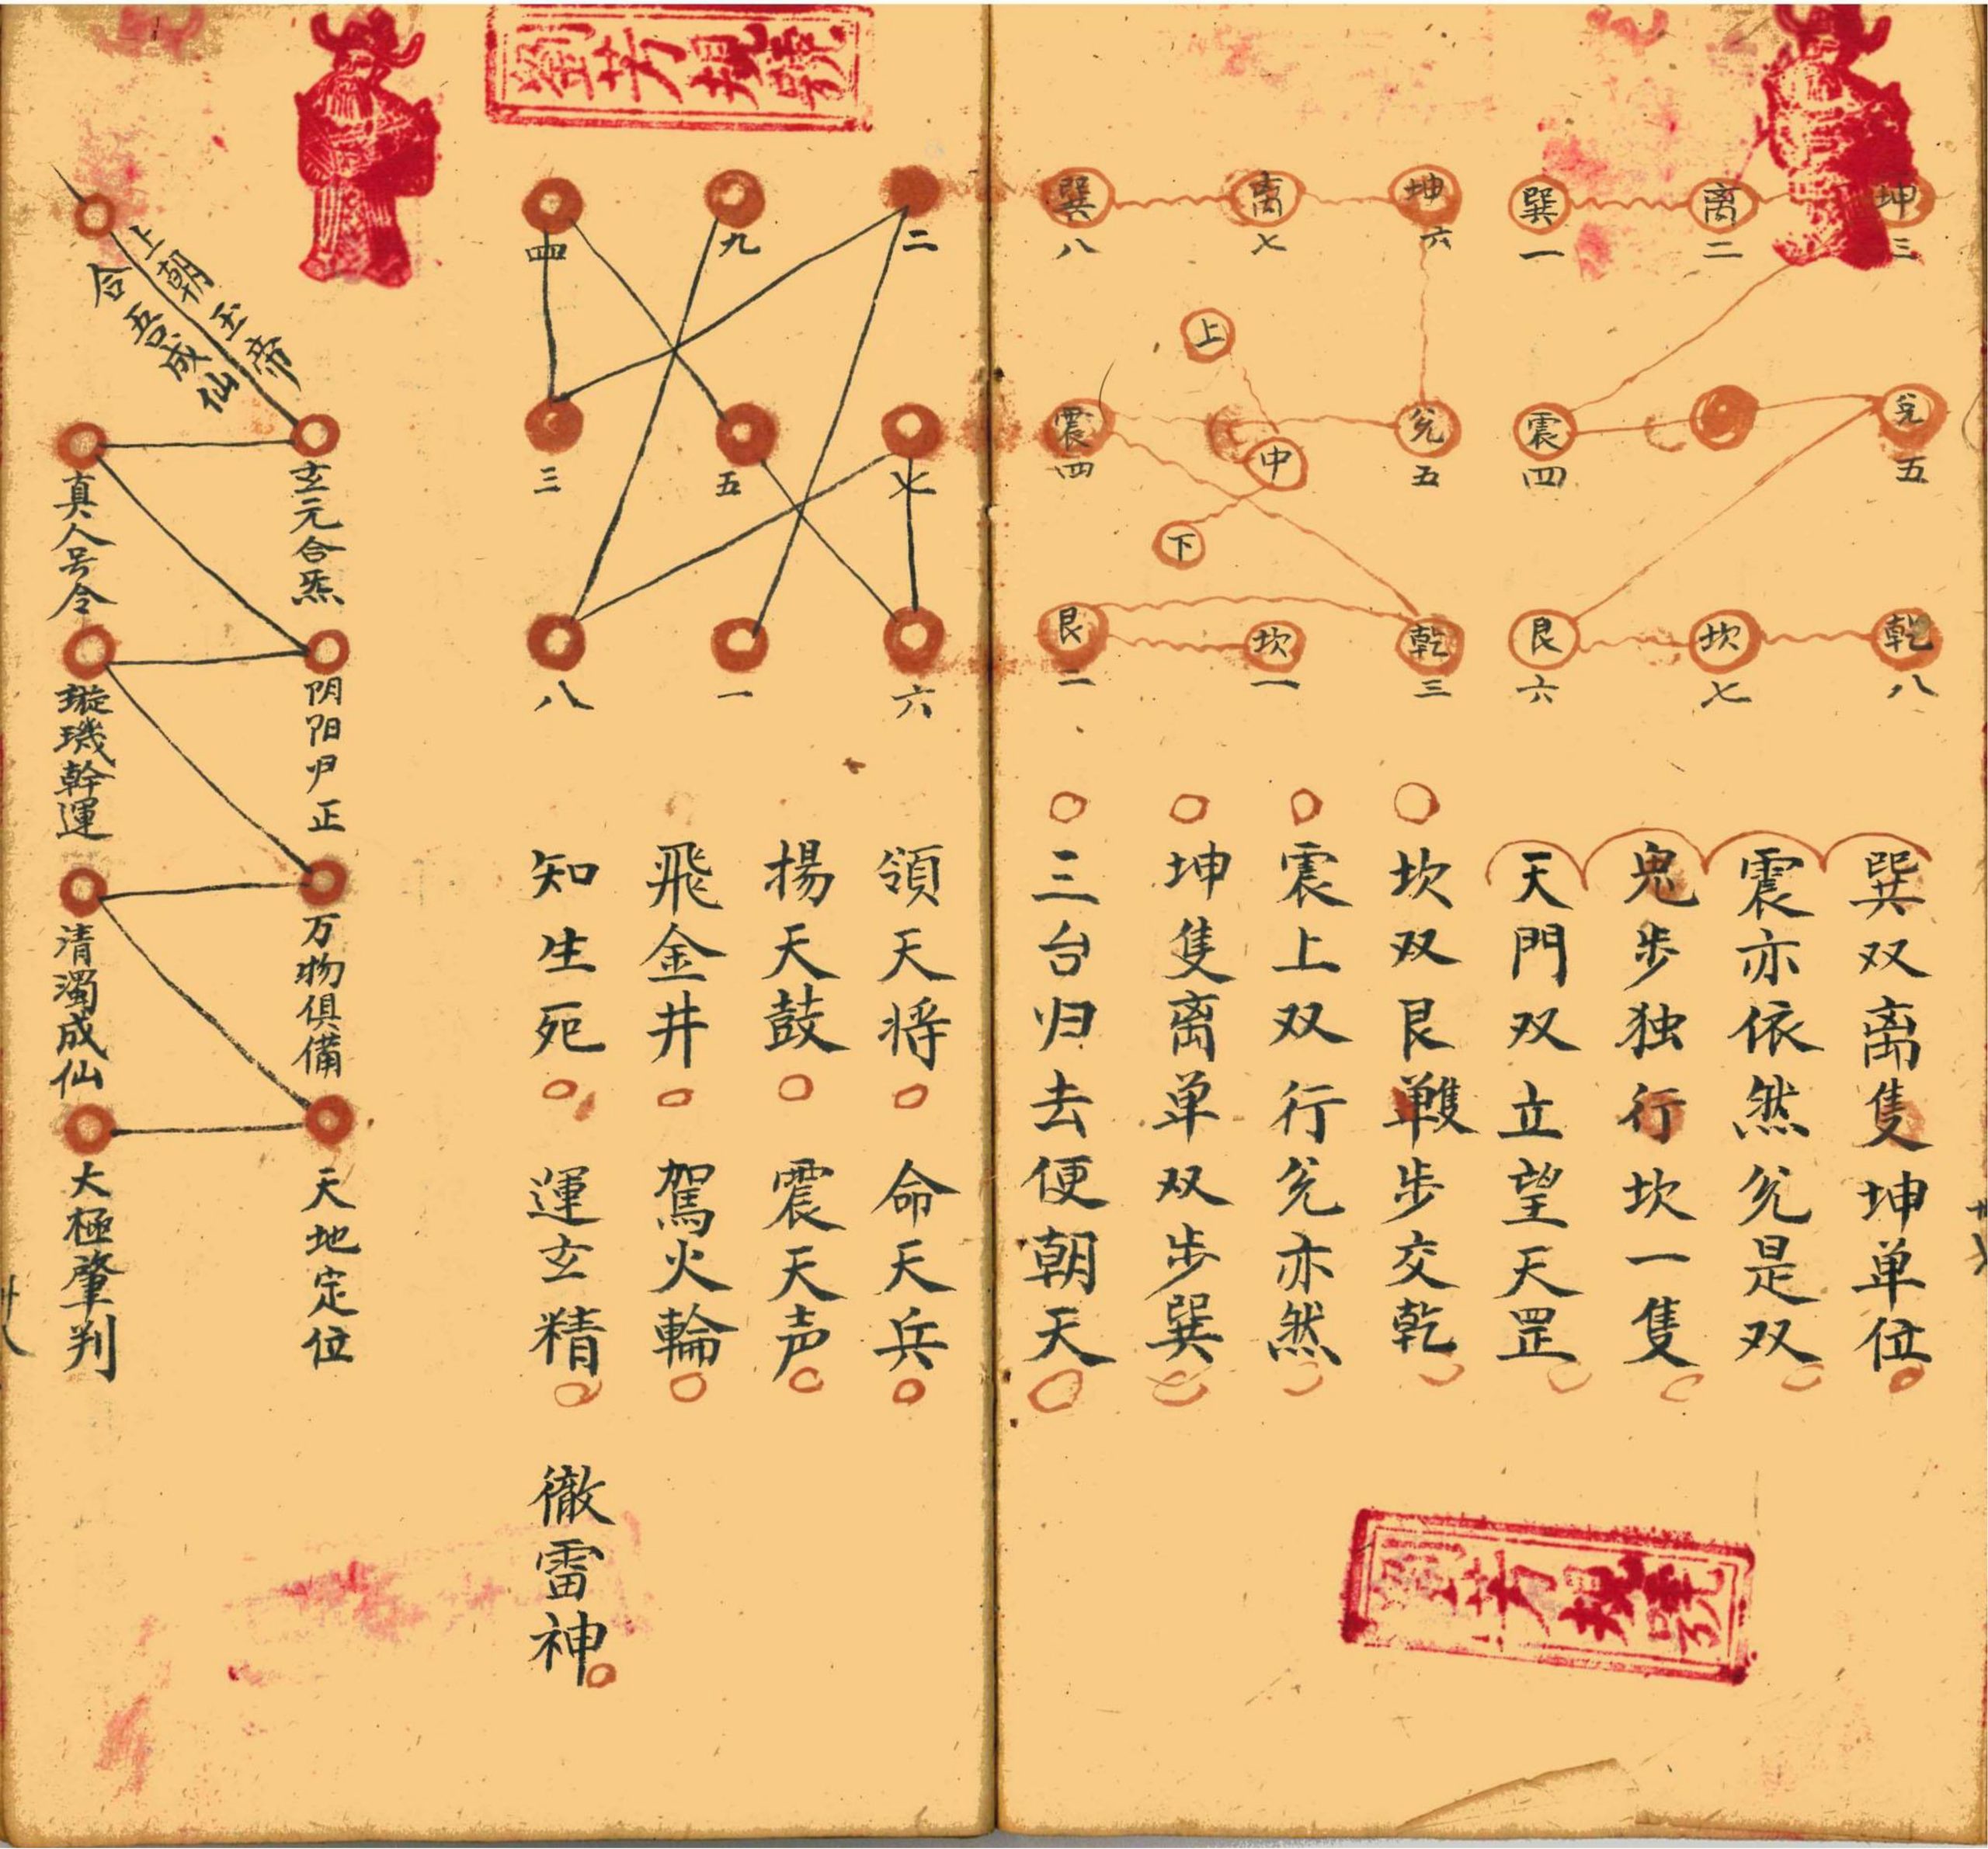 巽 离 坤
一 二 三
震 兑
四 五
艮 坎 乾
六 七 八
巽双离隻坤单位
震亦依然兑是双
鬼步独行坎一隻
天門双立望天罡
巽 离 坤
八 七 六
上
震 中 兑
四 五
下
艮 坎 乾
二 一 三
坎双艮步交乾
震上双行兑亦然
坤隻离单双步巽
三台归去便朝天
四 九 二
三 五 七
八 一 六
領天将 命天兵
揚天鼓 震天声
飛金井 駕火輪
知生死 運玄精 徹雷神
上朝玉帝
合吾成仙
玄元合炁
真人号令
阴阳归正
璇璣幹運
万物俱備
清濁成仙
天地定位
大極肇判